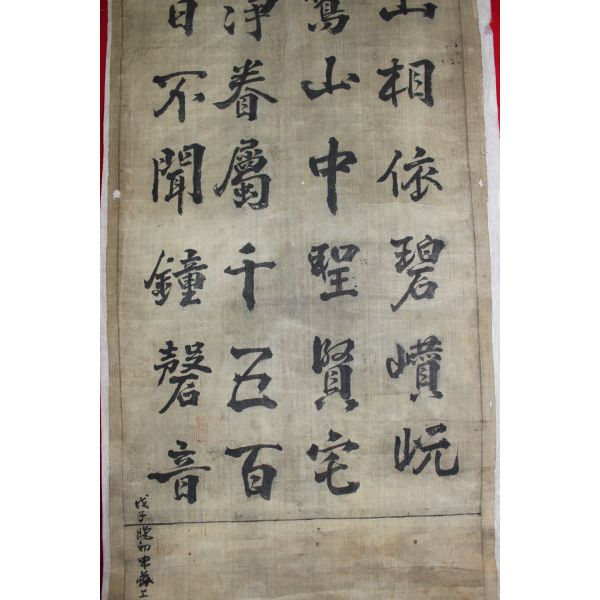 山相依碧巑岏
鷲山中聖賢宅
淨眷屬千五百
日不聞鐘磬音
戊子